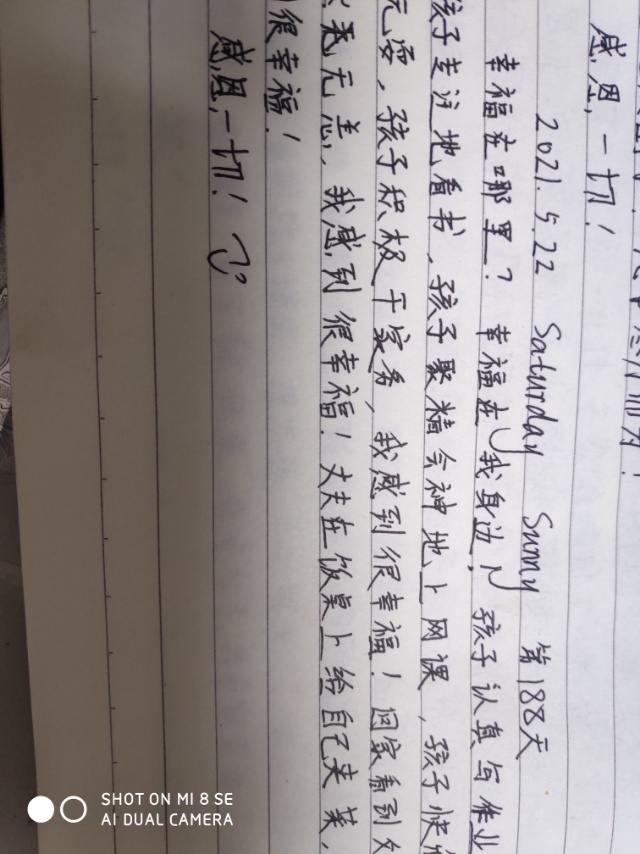 感恩一切！
2021.5.22 Saturday Sunny 第188天
幸福在哪里？幸福在我身边，孩子认真写作业
孩子专注地看书，孩子聚精会神地上网课，孩子快
玩耍，孩子积极干家务，我感到很幸福！回家看到父
无恙，我感到很幸福！丈夫在饭桌上给自己夹菜，
很幸福！
感恩一切！
SHOT ON MI 8 SE
AI DUAL CAMERA